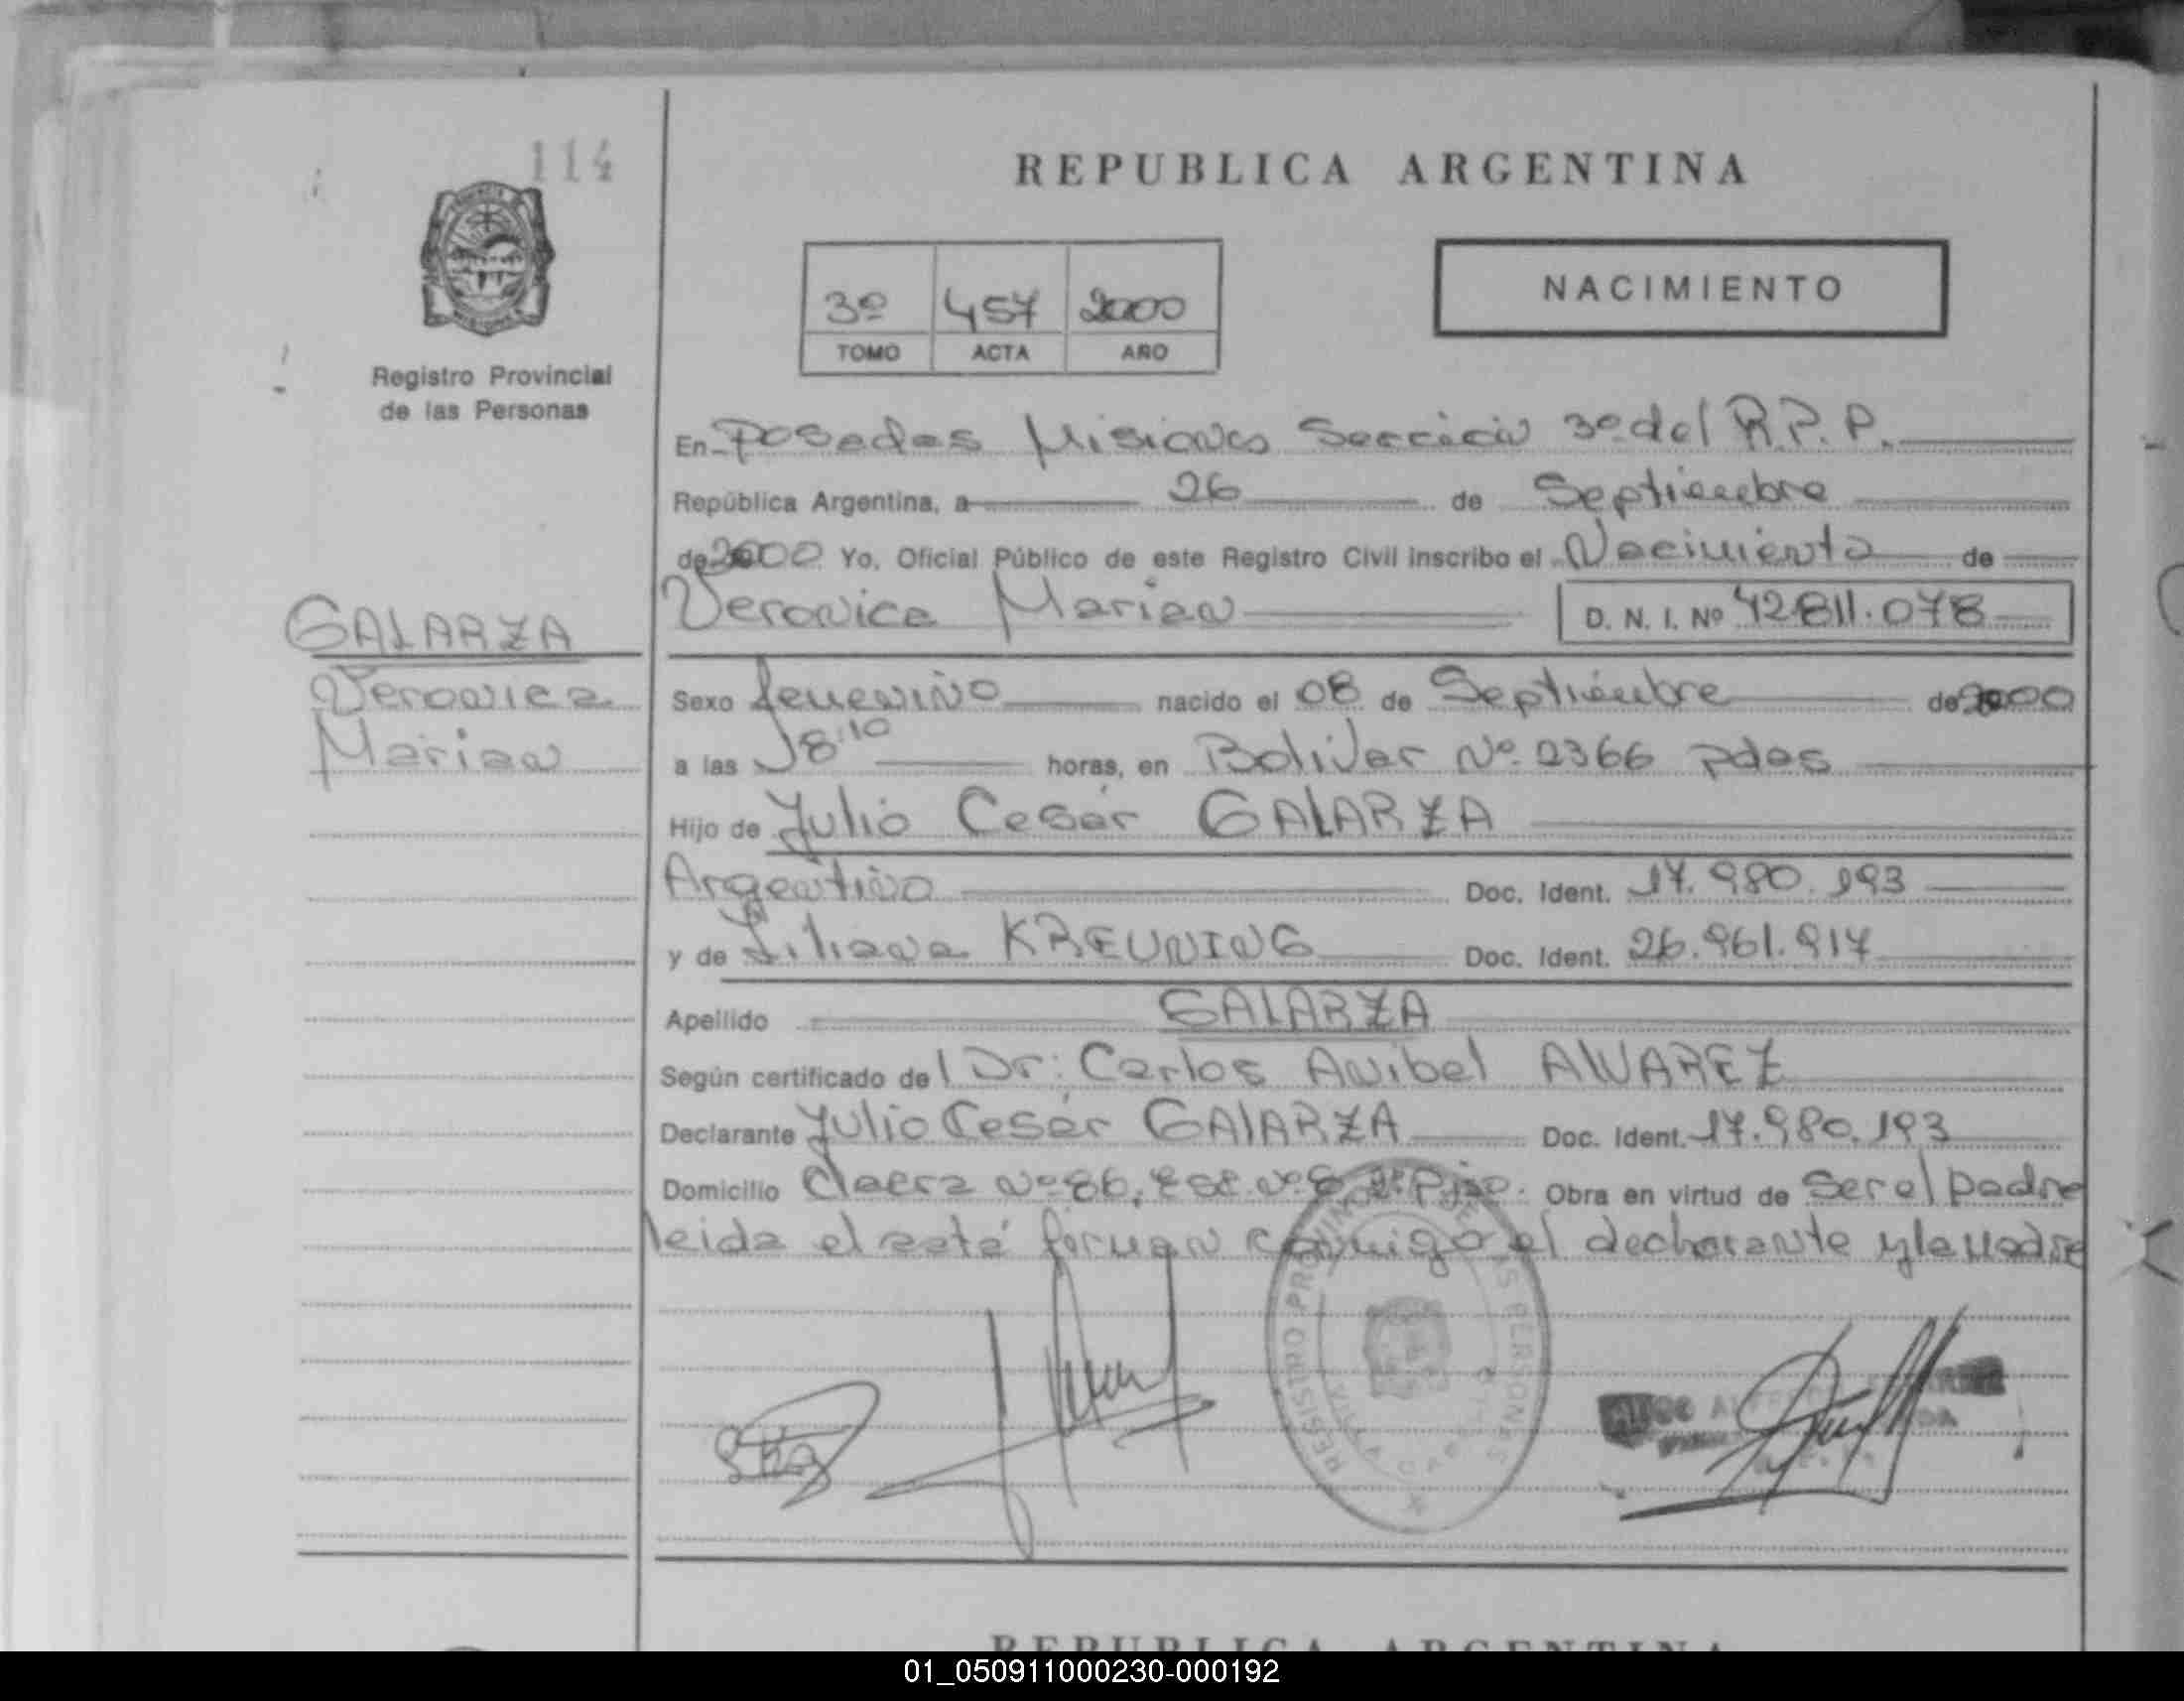 114
REPUBLICA ARGENTINA
3º 457 2000
TOMO ACTA AÑO
NACIMIENTO
Registro Provincial
de las Personas
En Posadas Misiones Sección 3º del R.P.P.
República Argentina, a 26 de Septiembre
de 2000 Yo, Oficial Público de este Registro Civil inscribo el Nacimiento de
Veronica Marian D. N. I. Nº 42.811.078
GALARZA
Veronica
Marian
Sexo femenino nacido el 08 de Septiembre de 2000
a las 18:10 horas, en Bolivar Nº 2366 pdas
Hijo de Julio Cesar GALARZA
Argentino Doc. Ident. 17.980.193
y de Liliana KREUNING Doc. Ident. 26.961.917
Apellido GALARZA
Según certificado del Dr: Carlos Anibal ALVAREZ
Declarante Julio Cesar GALARZA Doc. Ident. 17.980.193
Domicilio Nº 86, Piso. Obra en virtud de Ser el padre
leida el acta firman conmigo el declarante y la Madre
REGISTRO PROVINCIAL DE LAS PERSONAS
REPUBLICA ARGENTINA
01_050911000230-000192